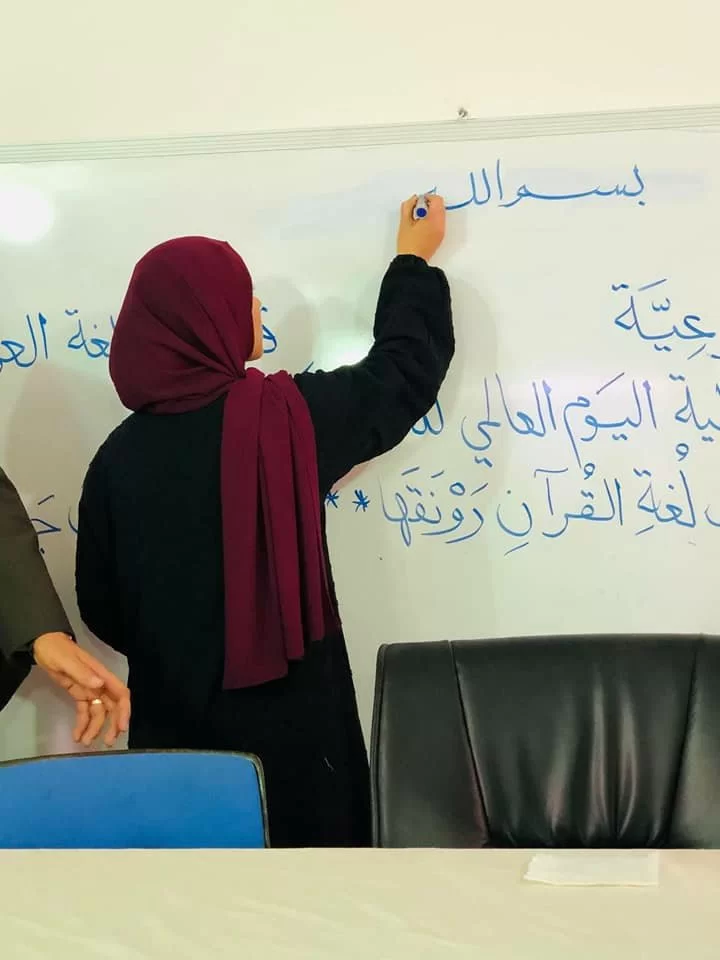 بسم الله
عِيَّة لغة العر
لية اليَوم العالمي
لُغةِ القُرآنِ رَوْنَقَها **